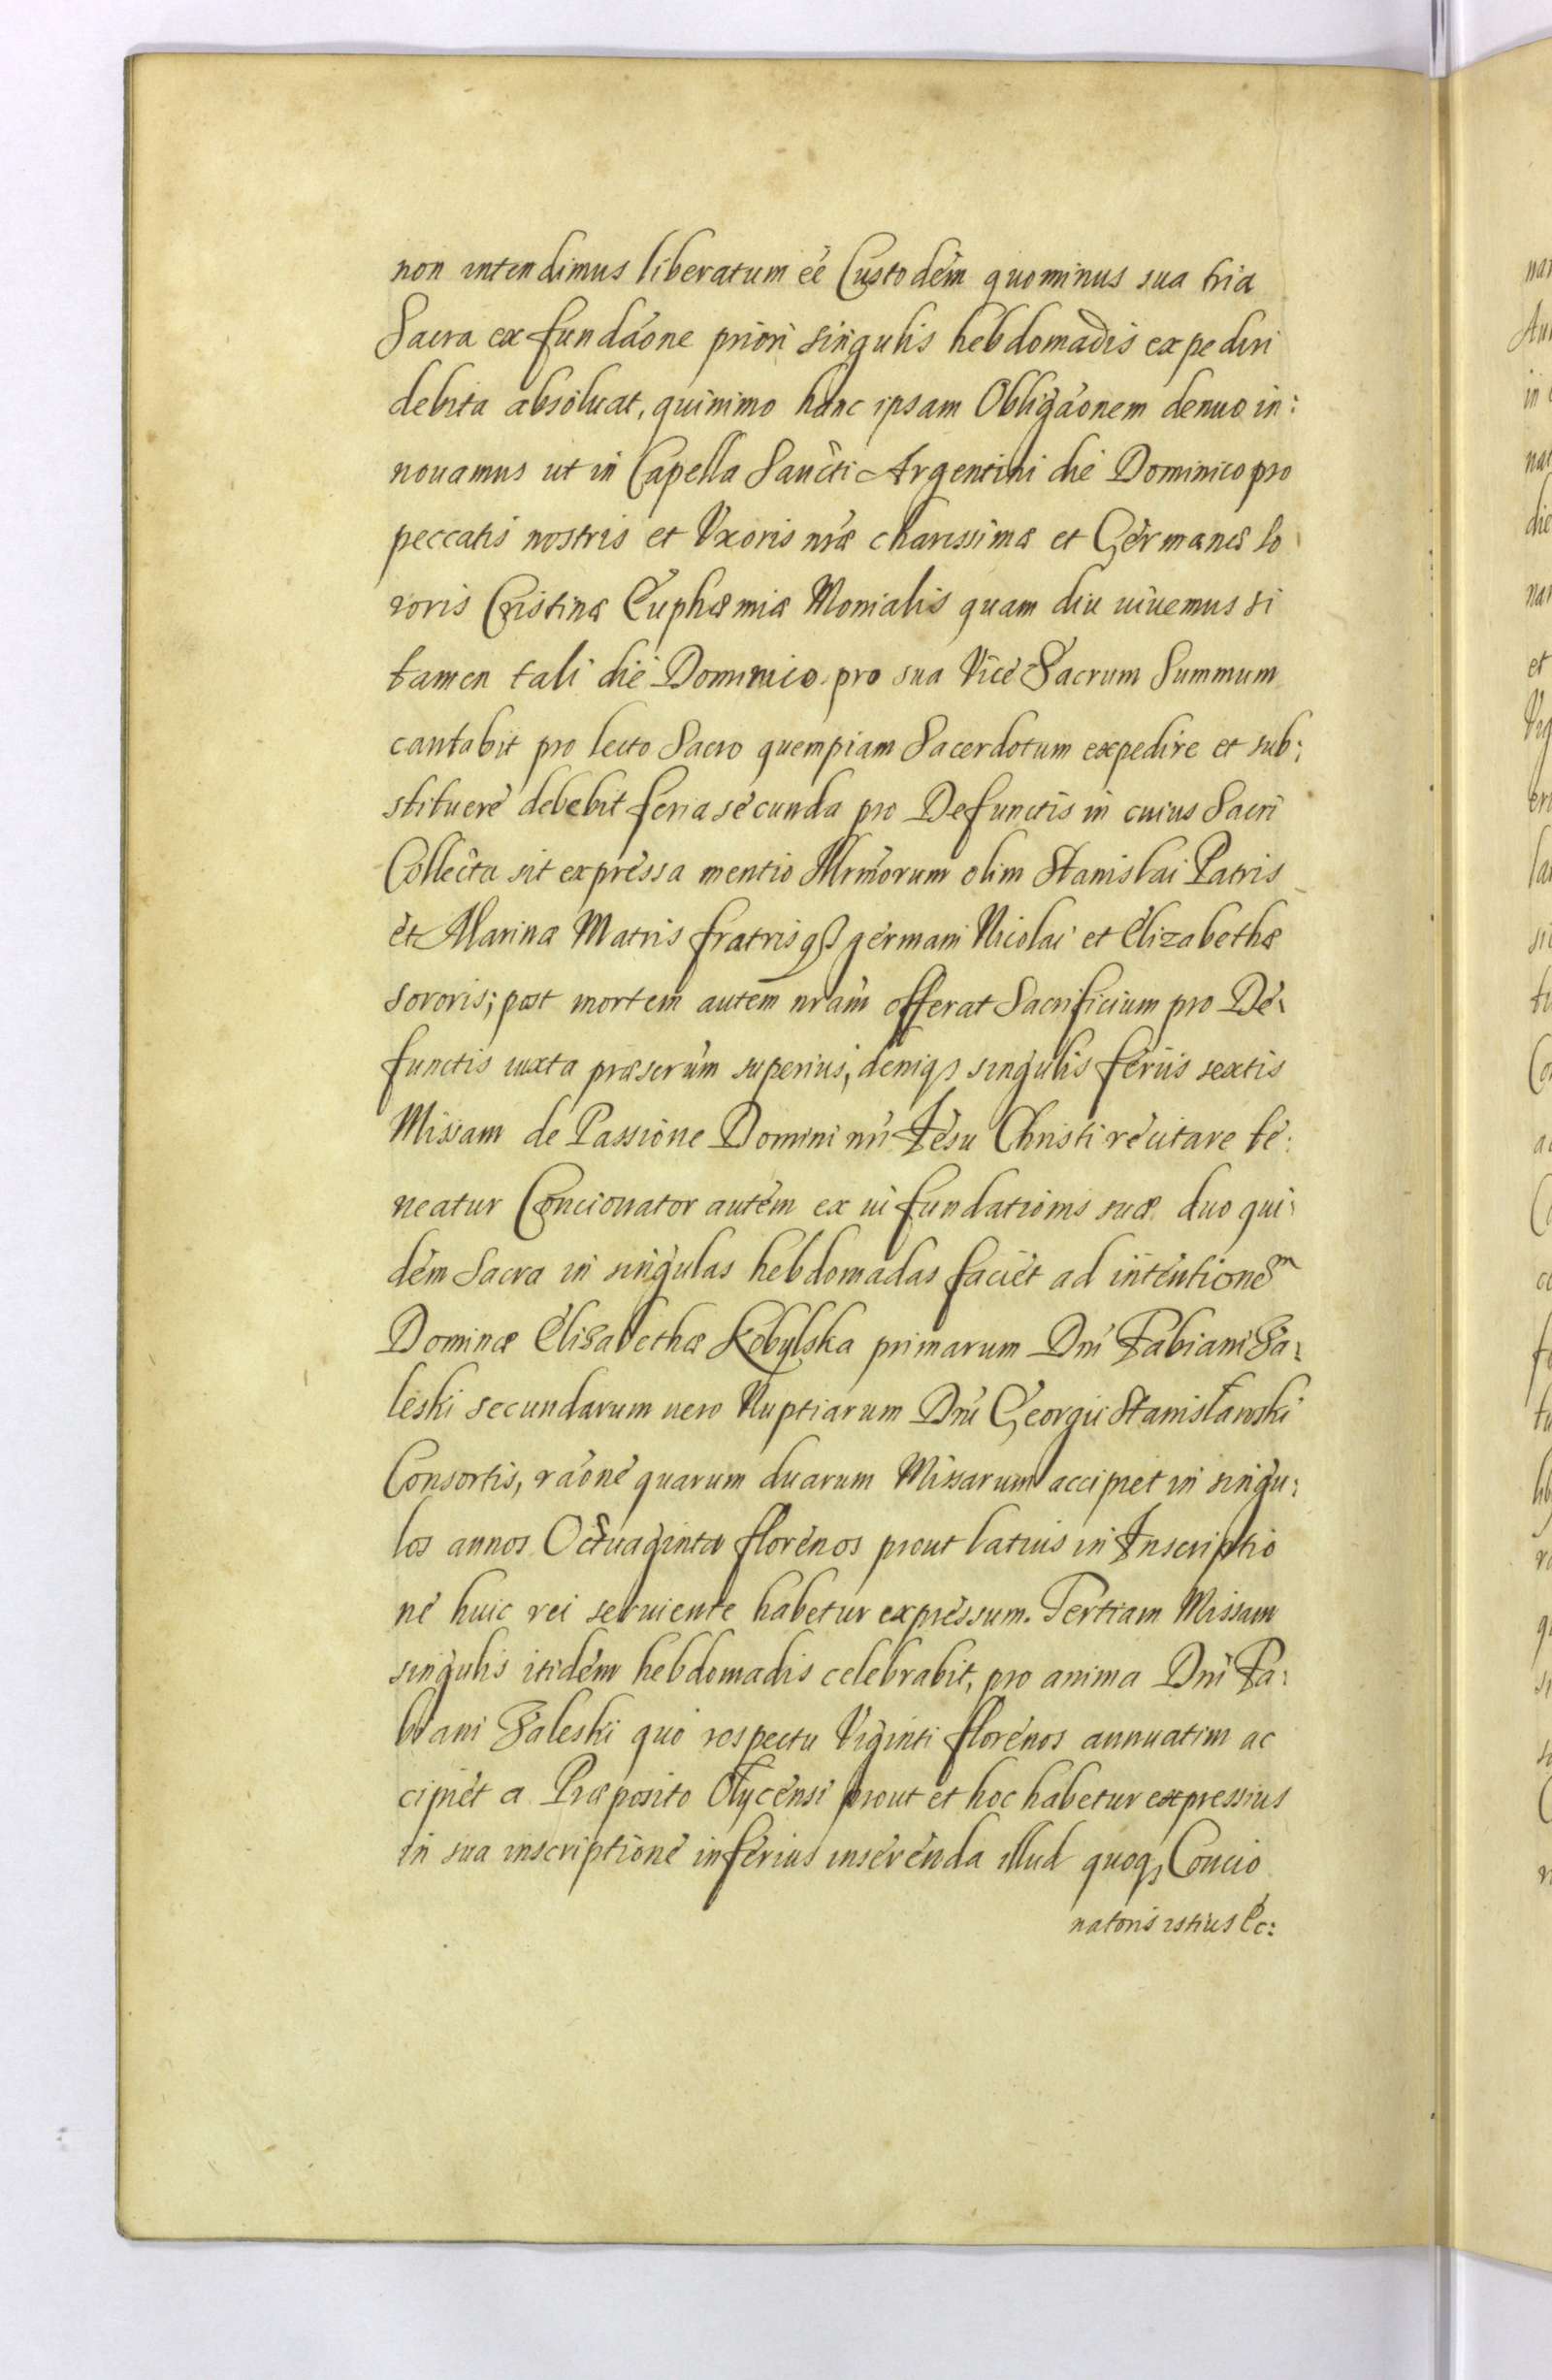 non intendimus liberatum eé Custodém quominus sua tria
Sacra ex fundáone priori singulis hebdomadis expediri
debita absoluat, quinimo hanc ipsam Obligáonem denuo in:
nouamus ut in Capella Sancti Argentini die Dominico pro
peccatis nostris et Vxoris nræ charissimæ et Germanæ so
roris Cristinæ Euphæmiæ Monialis quam diu uiuemus si
tamen tali die Dominico pro sua Vice Sacrum Summum
cantabit pro lecto Sacro quempiam Sacerdotum expedire et sub:
stituere debebit feria secunda pro Defunctis in cuius Sacri
Collecta sit expressa mentio Illrmorum olim Stanislai Patris
et Marinæ Matris fratrisq3 germani Nicolai et Elizabethæ
sororis; post mortem autem nram offerat Sacrificium pro De:
functis iuxta præscrum superius, deniq3 singulis feriis sextis
Missam de Passione Domini nri Iesu Christi recitare te:
neatur Concionator autem ex ui fundationis suæ duo qui:
dem Sacra in singulas hebdomadas faciet ad intentionem
Dominæ Elisabethæ Kobylska primarum Dni Fabiani Za:
leski secundarum uero Nuptiarum Dni Georgii Stanisławski
Consortis, ráone quarum duarum Missarum accipiet in singu:
los annos Octuaginta florenos prout latius in Inscriptio
ne huic rei seruiente habetur expressum. Tertiam Missam
singulis itidem hebdomadis celebrabit, pro anima Dni Fa:
biani Zaleski quo respectu Viginti florenos annuatim ac
cipiet a Præposito Ołycensi prout et hoc habetur expressius
in sua inscriptione inferius inserenda illud quoq3 Concio
natoris istius &c: